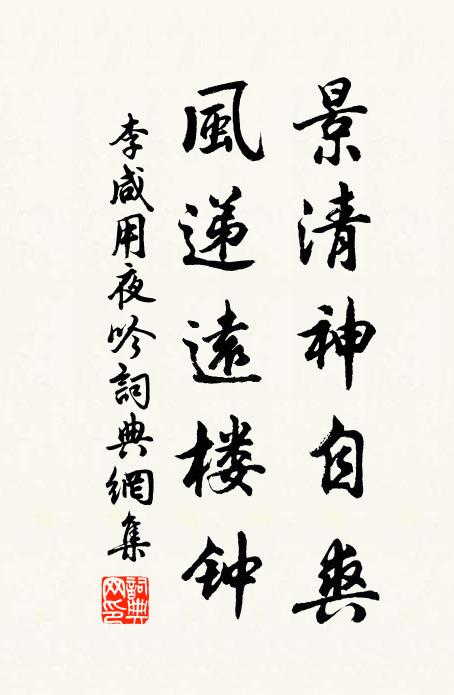 景清神自爽
風递遠楼钟
李咸用夜吟詞典網集
詞典
网印